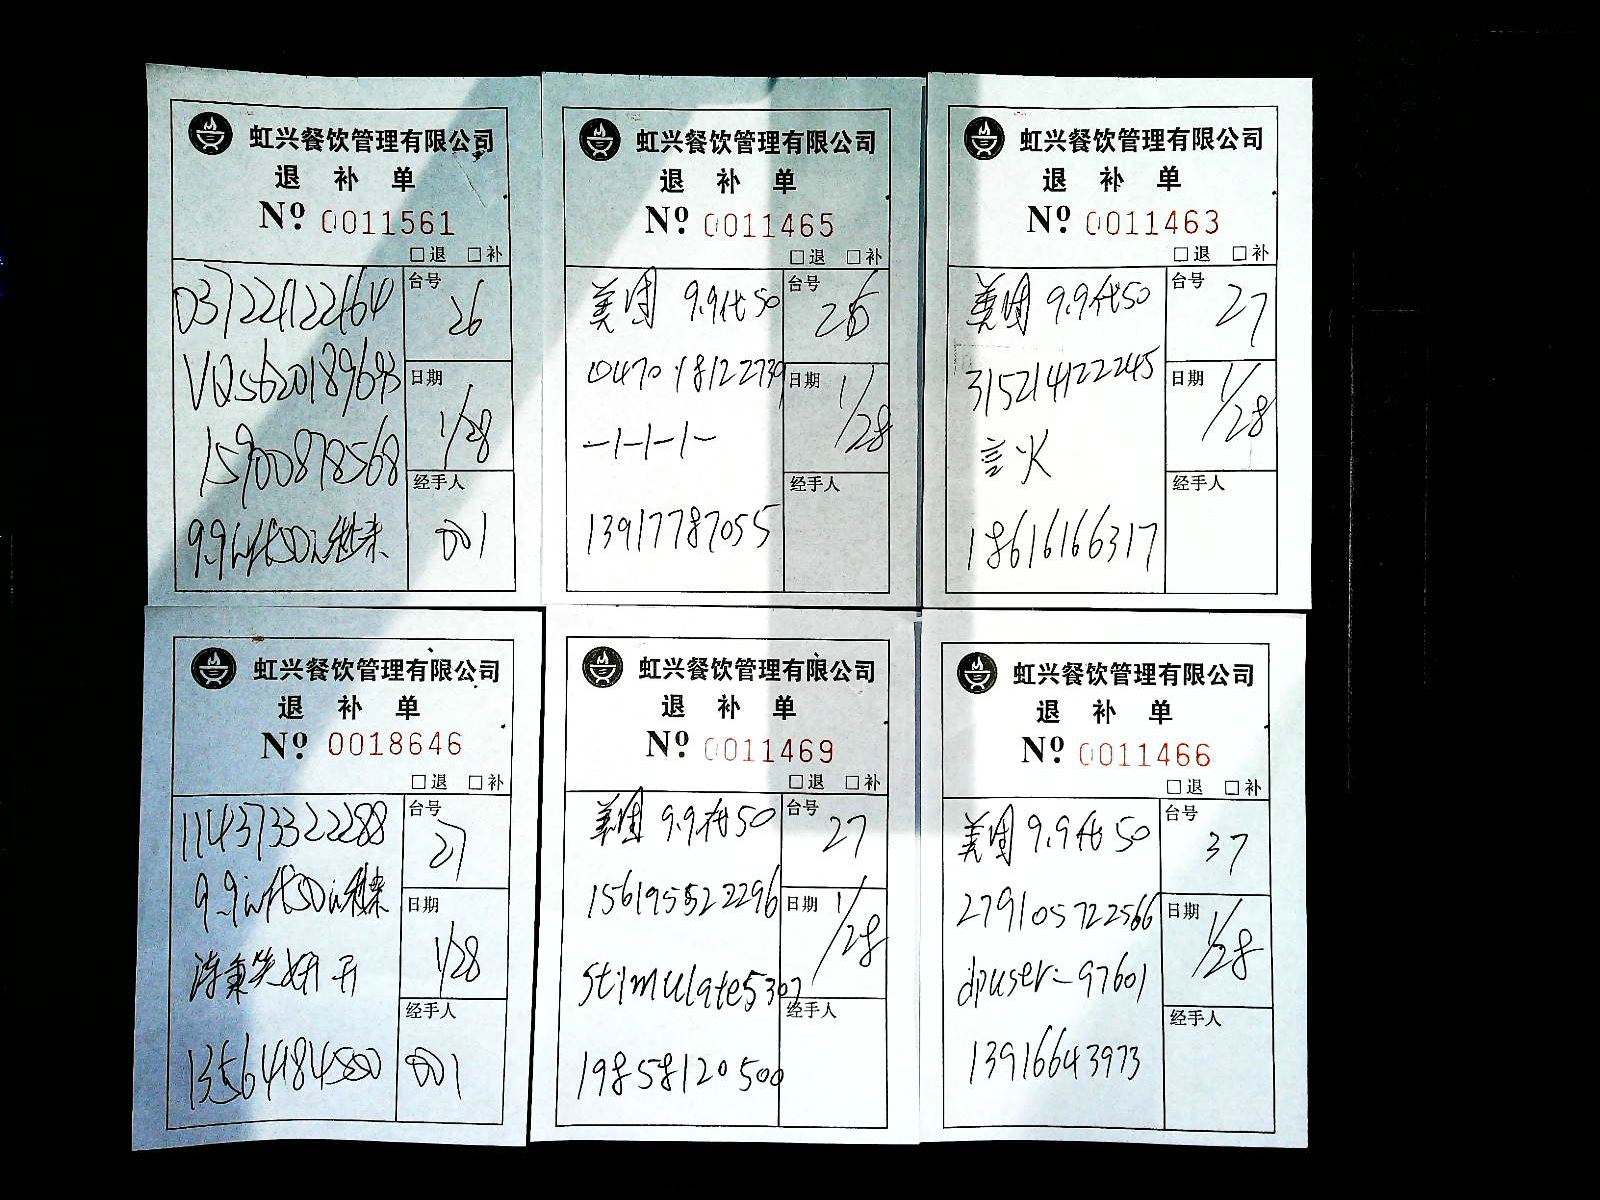 虹兴餐饮管理有限公司
退 补 单
Nº 0011561
□退 □补
台号
26
日期
1/28
经手人
001
037224122464
VQ5620189693
15900878568
9.9代50
虹兴餐饮管理有限公司
退 补 单
Nº 0011465
□退 □补
美团 9.9代50
台号
26
0470 18122739
日期
1/28
-1-1-1-
经手人
13917787055
虹兴餐饮管理有限公司
退 补 单
Nº 0011463
□退 □补
美团 9.9代50
台号
27
315214122245
日期
1/28
言火
经手人
18616166317
虹兴餐饮管理有限公司
退 补 单
Nº 0018646
□退 □补
114373322288
台号
27
9.9代50
日期
1/28
经手人
13564184500
001
虹兴餐饮管理有限公司
退 补 单
Nº 0011469
□退 □补
美团 9.9代50
台号
27
156195522296
日期
1/28
stimulate5307
经手人
19858120500
虹兴餐饮管理有限公司
退 补 单
Nº 0011466
□退 □补
美团 9.9代50
台号
37
279105722566
日期
1/28
dpuser-97601
经手人
13916643973